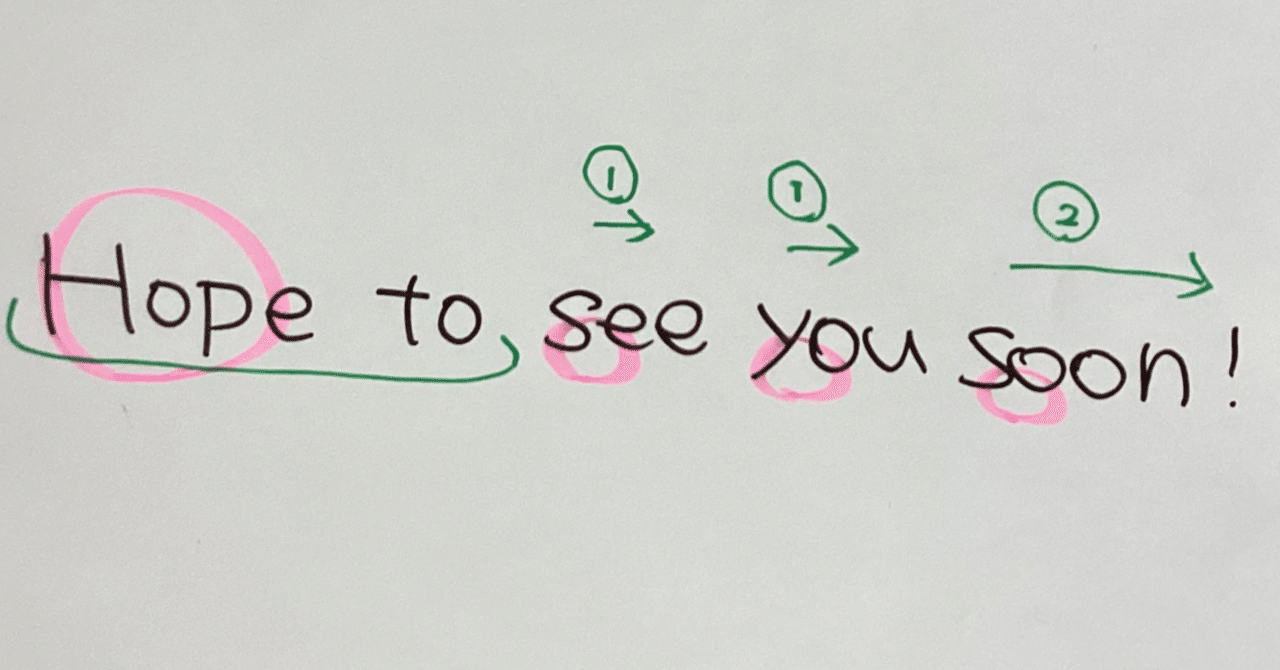 ① ① ②
Hope to see you soon!